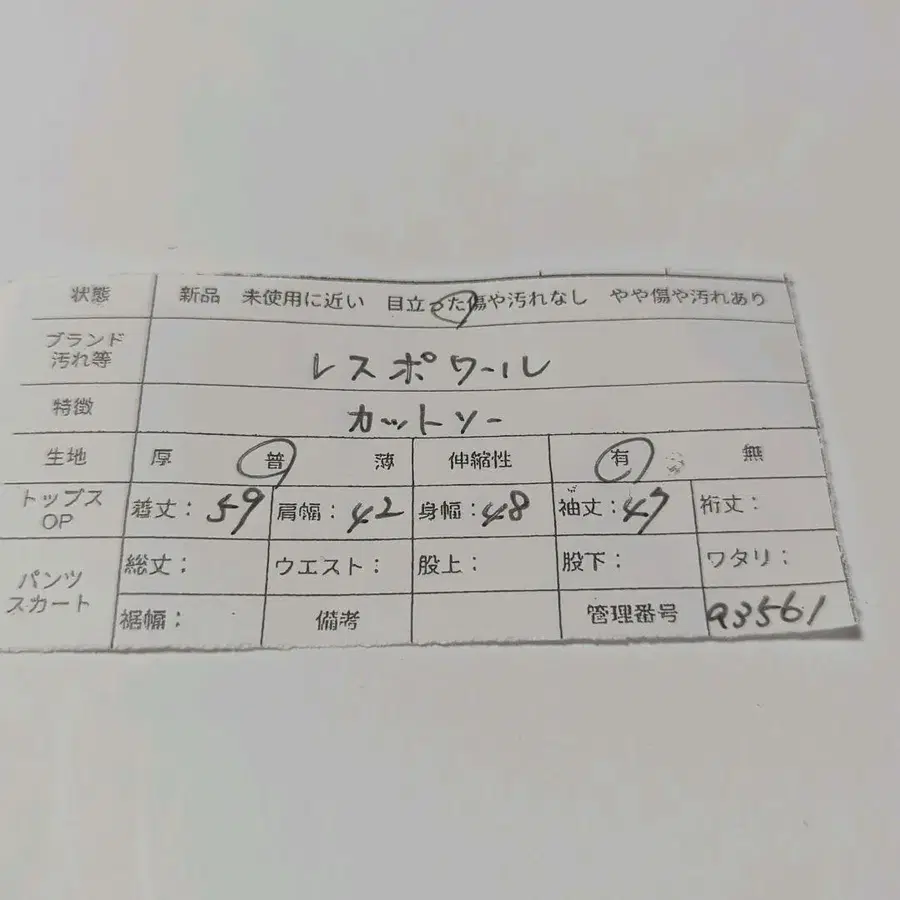 状態 新品 未使用に近い 目立った傷や汚れなし やや傷や汚れあり
ブランド
汚れ等 レスポワール
特徴 カットソー
生地 厚 普 薄 伸縮性 有 無
トップス
OP 着丈：59 肩幅：42 身幅：48 袖丈：47 裄丈：
パンツ
スカート 総丈： ウエスト： 股上： 股下： ワタリ：
裾幅： 備考 管理番号 a3561